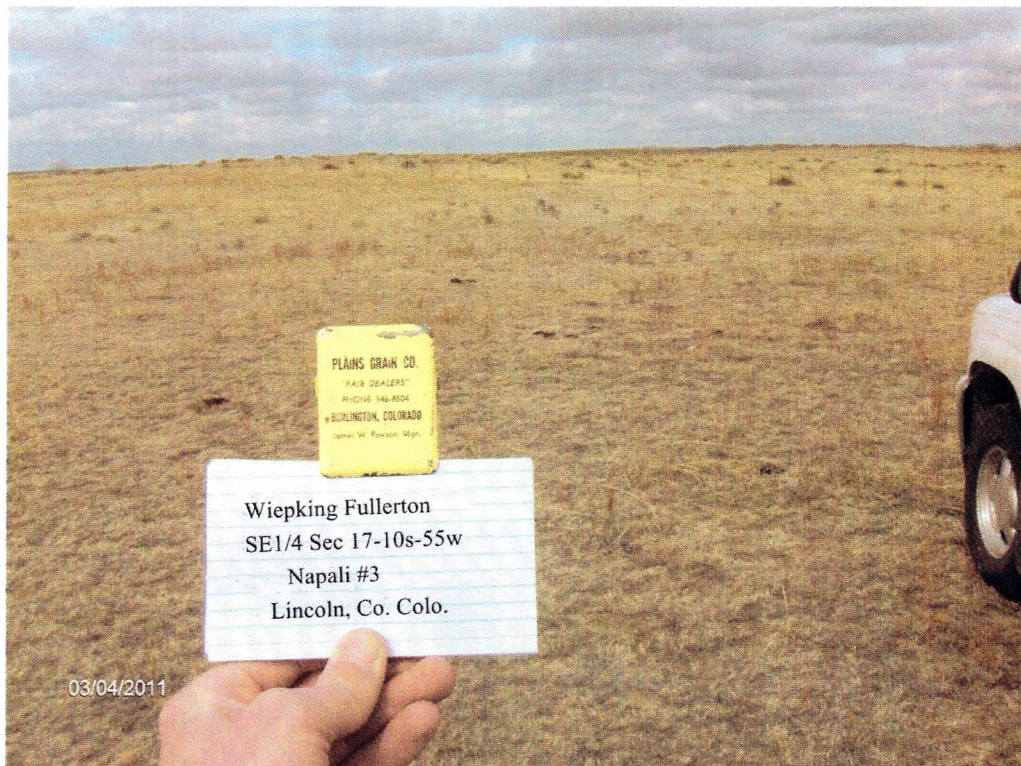 PLAINS GRAIN CO.
"FAIR DEALERS"
PHONE 346-8504
BURLINGTON, COLORADO
James W. Rowson Mgr.
Wiepking Fullerton
SE1/4 Sec 17-10s-55w
Napali #3
Lincoln, Co. Colo.
03/04/2011